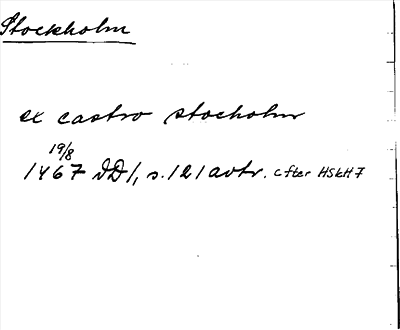 Stockholm
ex castro stocholm
19/8
1467 DD1, s. 121 avtr. efter HSkH 7